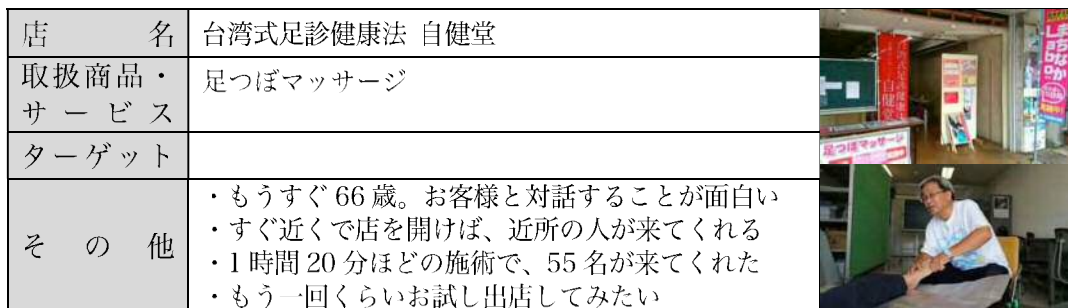 店名 台湾式足診健康法 自健堂
取扱商品・サービス 足つぼマッサージ
ターゲット
その他
・もうすぐ66歳。お客様と対話することが面白い
・すぐ近くで店を開けば、近所の人が来てくれる
・1時間20分ほどの施術で、55名が来てくれた
・もう一回くらいお試し出店してみたい
自健堂
足つぼマッサージ
まちなか